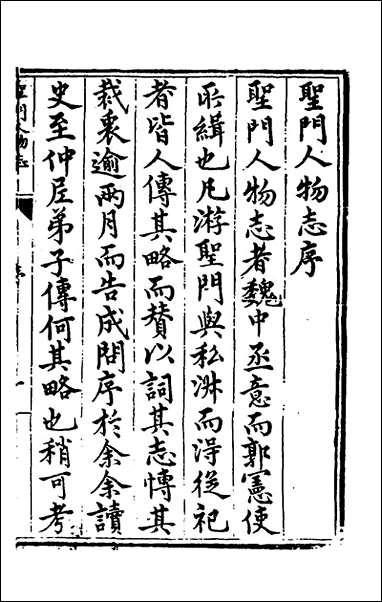 聖門人物志序
聖門人物志者魏中丞意而郭憲使
所緝也凡游聖門與私淑而得從祀
者皆人傳其略而賛以詞其志愽其
裁裏逾兩月而告成問序於余余讀
史至仲尼弟子傳何其略也稍可考
聖門人物志
序